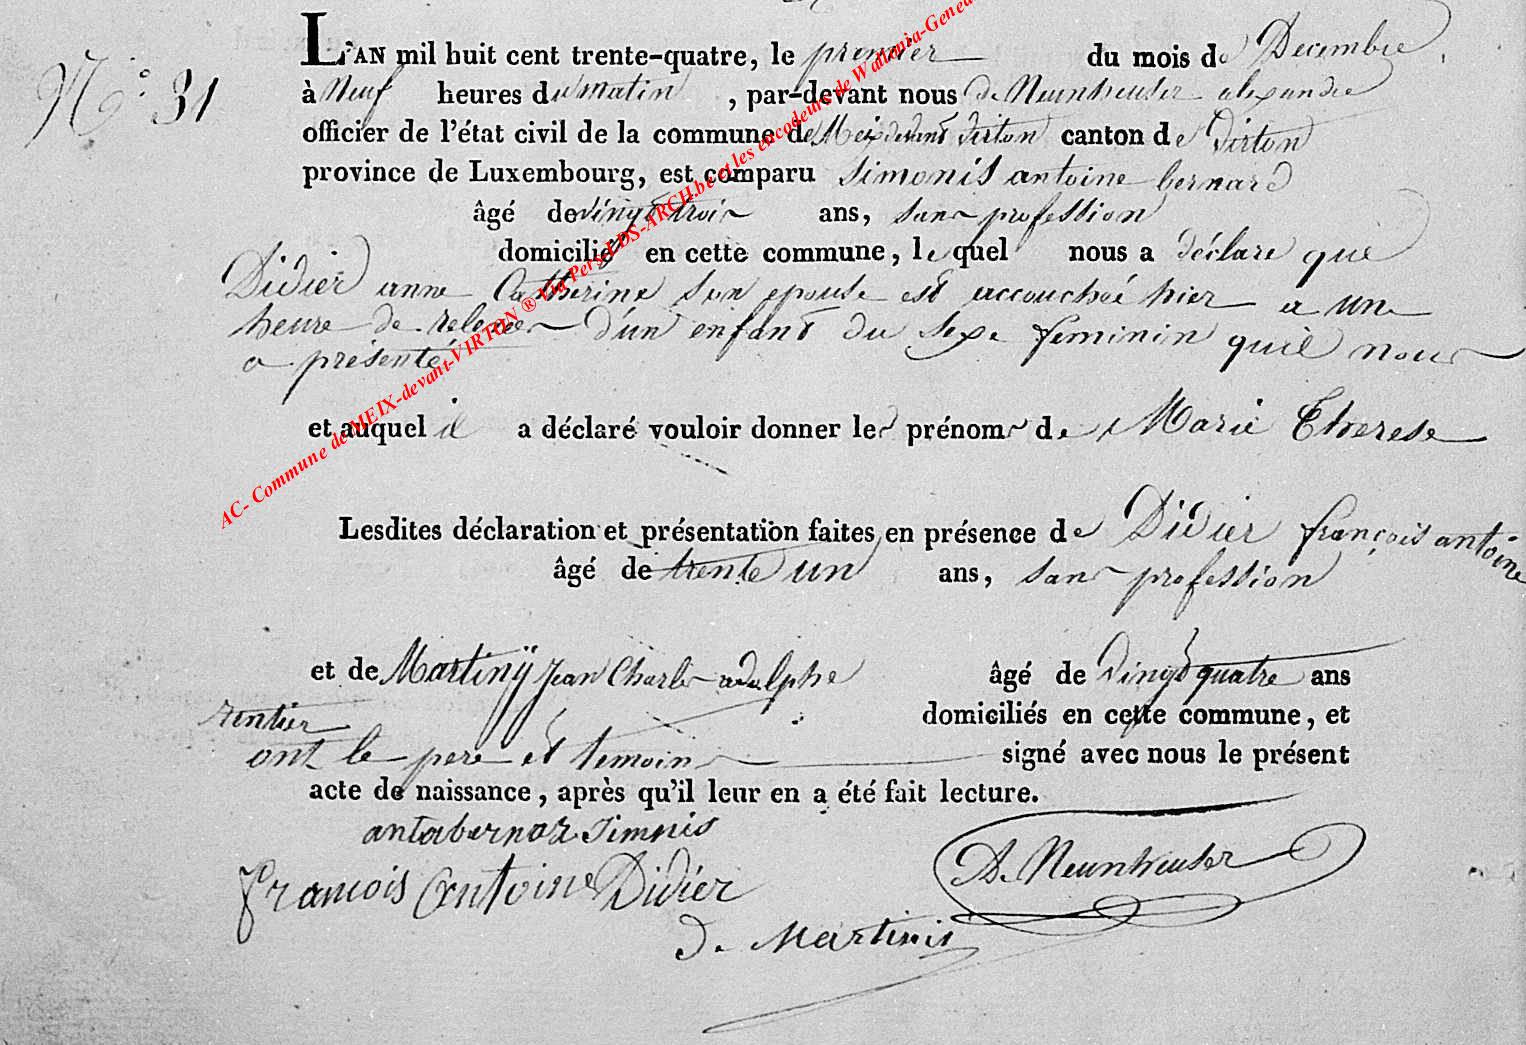 L'AN mil huit cent trente-quatre, le premier du mois de Decembre
No. 31
à Neuf heures du matin, par-devant nous de Neunheuser alexandre
officier de l'état civil de la commune de Meix devant virton canton de virton
province de Luxembourg, est comparu Simonis antoine bernard
âgé de vingt trois ans, sans profession
domicilié en cette commune, le quel nous a déclare que
Didier anne Catherine son epouse est accouchée hier a une
heure de relevée d'un enfant du sexe feminin quil nous
a présenté
et auquel il a déclaré vouloir donner les prénoms de Marie Therese
Lesdites déclaration et présentation faites en présence de Didier françois antoine
âgé de trente un ans, sans profession
et de Martinÿ Jean Charles adolphe âgé de vingt quatre ans
rentier domiciliés en cette commune, et
ont le pere et temoins signé avec nous le présent
acte de naissance, après qu'il leur en a été fait lecture.
François Antoine Didier
A. De Neunheuser
AC- Commune de MEIX-devant-VIRTON ® Via Pers-LDS-ARCH.be et les encodeurs de Wallonia-Genea